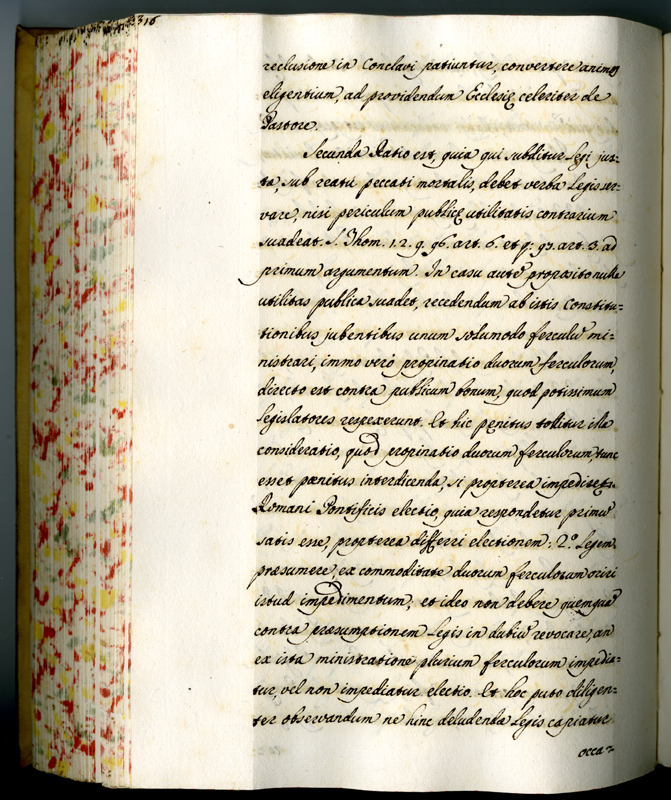 316
reclusione in Conclavi patiuntur, convertere animos
eligentium, ad providendum Ecclesię celeriter de
Pastore.
Secunda Ratio est, quia qui subditur Legi jus=
ta, sub reatu peccati mortalis, debet verba Legis ser=
vare, nisi periculum publicę utilitatis contrarium
suadeat. S. Thom. 1. 2. q. 96. art. 6. et q. 97. art. 3. ad
primum argumentum. In casu autē proposito nulla
utilitas publica suadet, recedendum ab istis Constitu=
tionibus jubentibus unum solumodo ferculū mi=
nistrari, immo verò propinatio duorum ferculorum
directo est contra publicum bonum, quod potissimum
Legislatores respexerunt. Et hic pęnitus tollitur illa
consideratio, quod propinatio duorum ferculorum, tunc
esset pœnitus interdicenda, si propterea impediretur
Romani Pontificis electio, quia respondetur primū
satis esse, propterea differri electionem: 2.º Legem
præsumere, ex commoditate duorum ferculorum oriri
istud impedimentum; et ideo non debere quemquā
contra præsumptionem Legis in dubiū revocare, an
ex ista ministratione plurium ferculorum impedia=
tur, vel non impediatur electio. Et hoc puto diligen=
ter observandum ne hinc deludendæ Legis capiatur
occa=